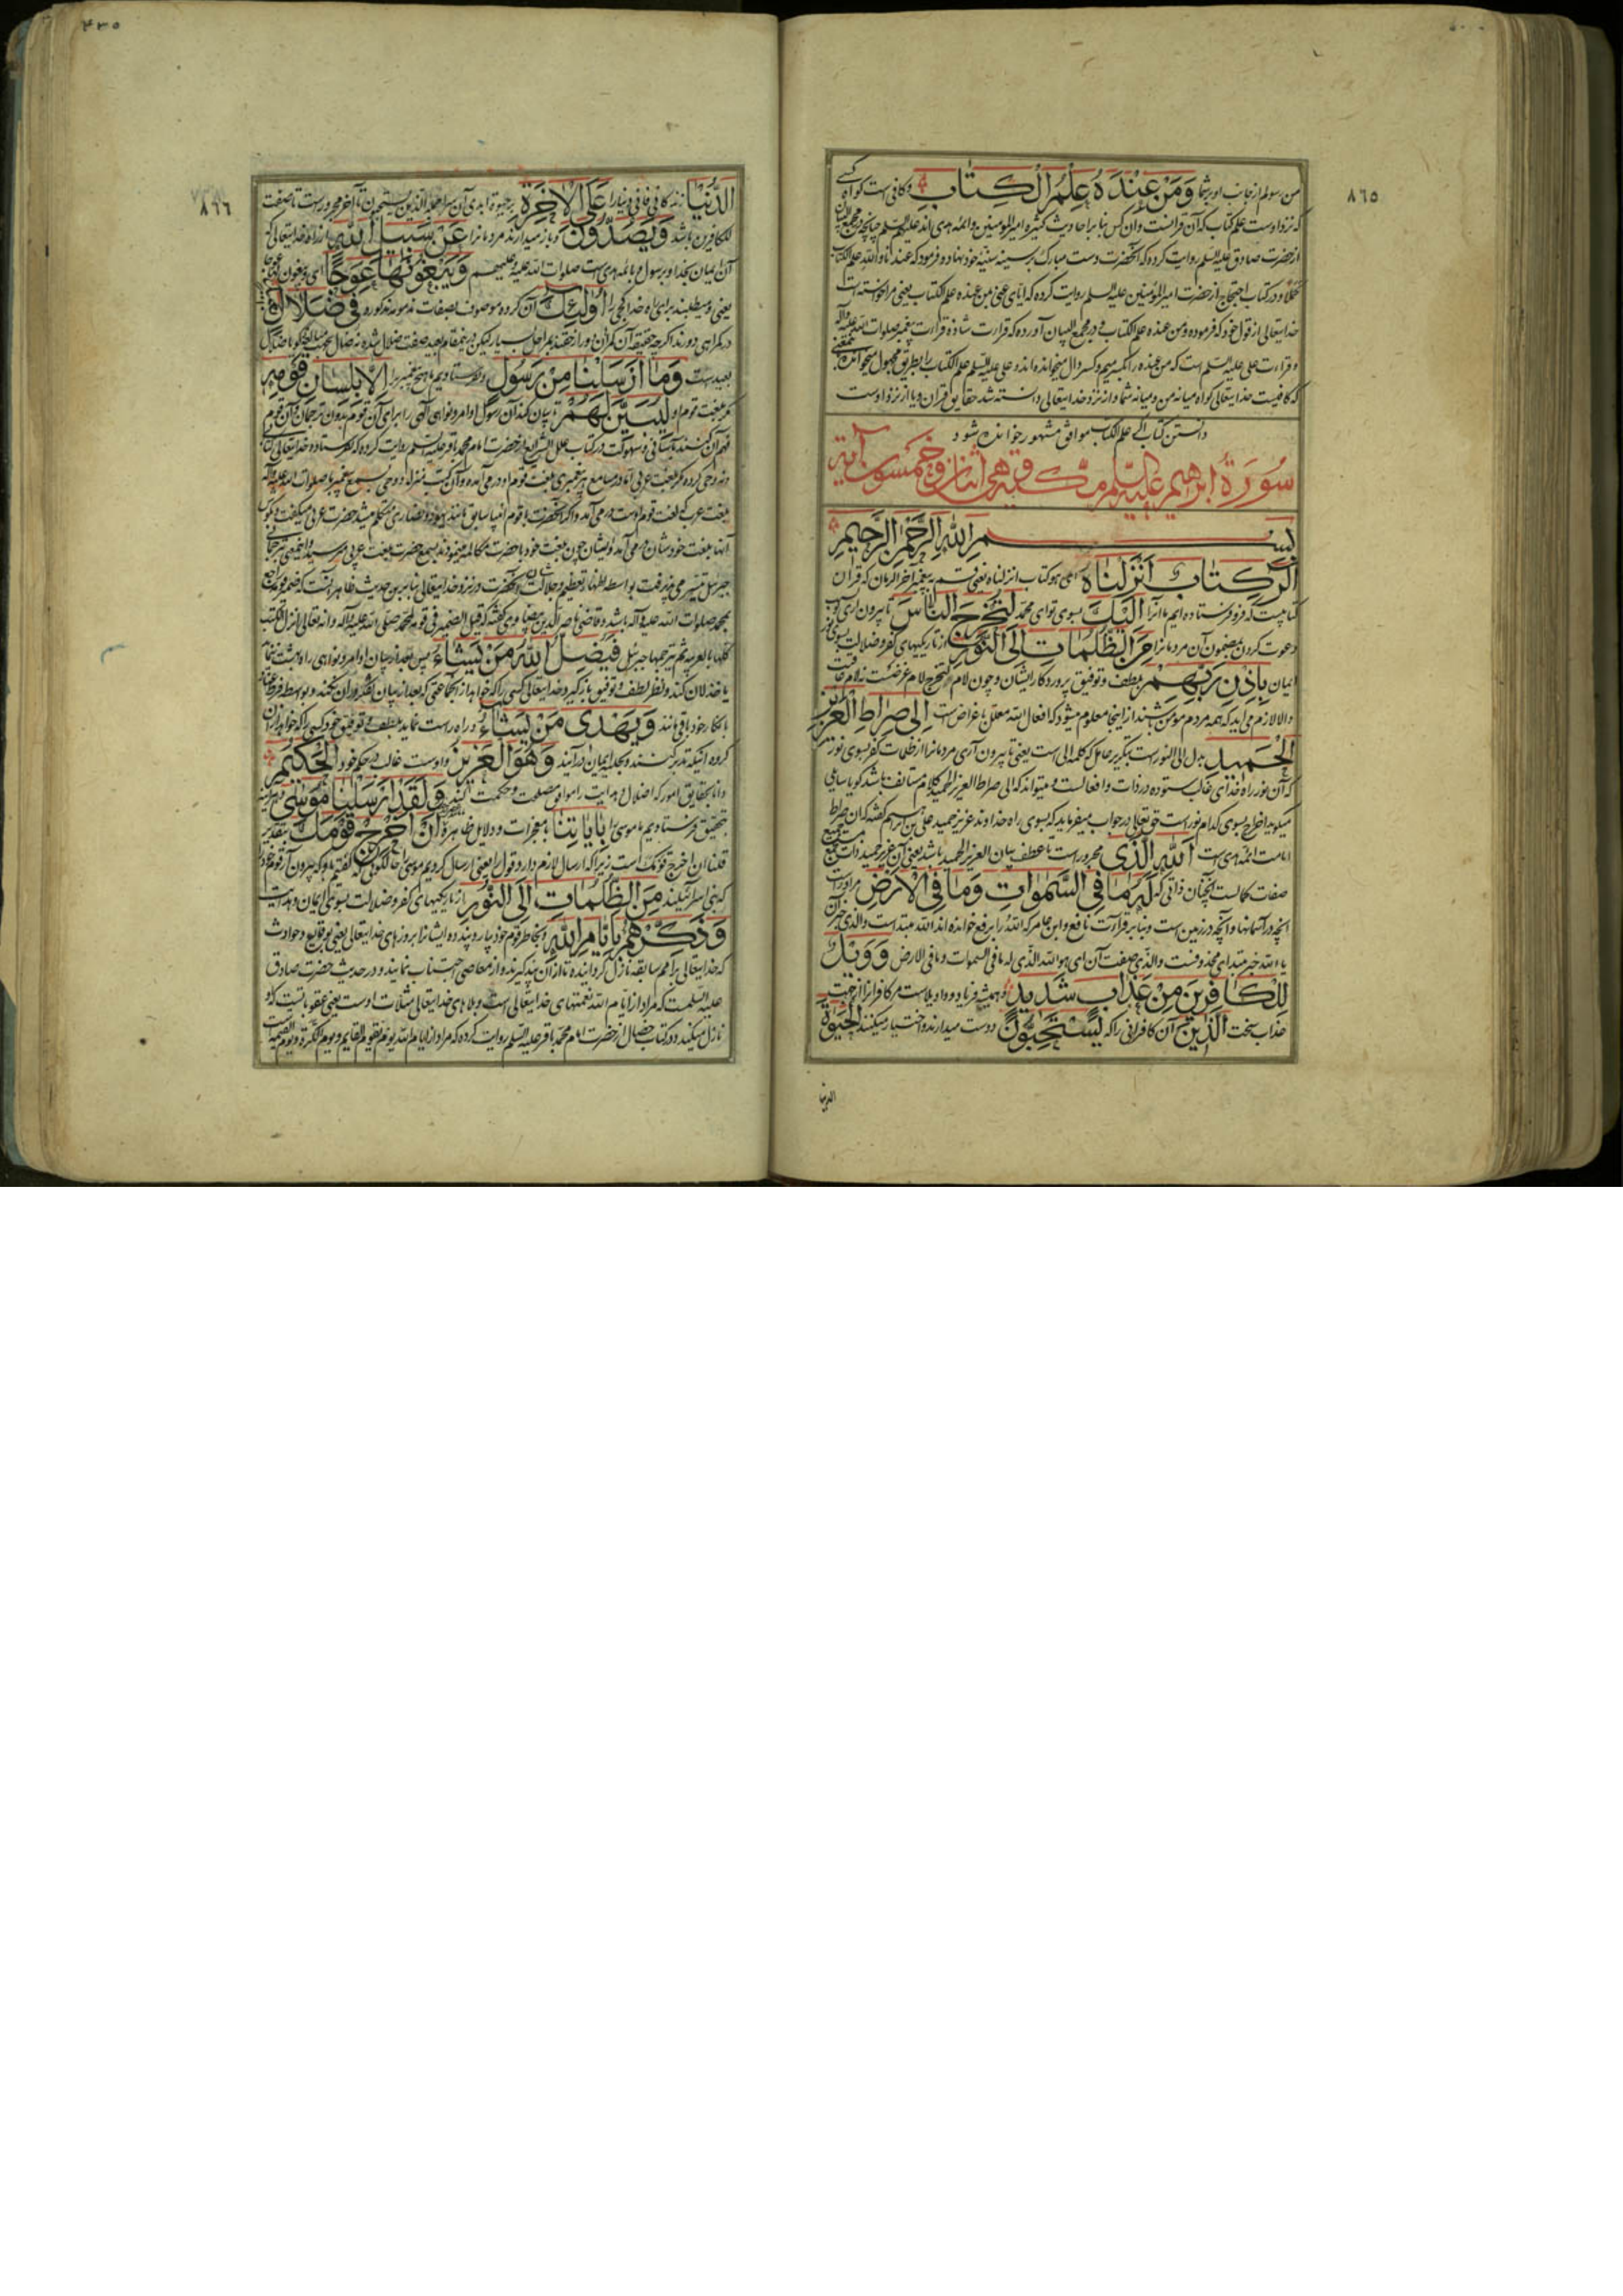 ٨٦٥
من رسولم از جانب او بر شما وَمَنْ عِنْدَهُ عِلْمُ الْكِتَابِ و کافی است کواه کسی
که نزد اوست علم کتاب که آن قرانست و آن کس بنا بر احادیث کثیره امیر المؤمنین و ائمه هدی اند علیهم السلم چنانچه در مجمع البیان
از حضرت صادق علیه السلم روایت کرده که آنحضرت دست مبارک بر سینه خود نهاد و فرمود که عندنا والله علم الکتاب
و در کتاب احتجاج از حضرت امیر المؤمنین علیه السلم روایت کرده که ایای عنی بمن عنده علم الکتاب یعنی مرا خواسته است
خدایتعالی از قول خود که فرموده و من عنده علم الکتاب و در مجمع البیان آورده که قرائت شاذه قرائت پیغمبر صلوات الله علیه وآله
و قرائت علی علیه السلم است که من عنده را بکسر میم و کسر دال میخوانده اند و علی علیه السلم علم الکتاب را بطریق مجهول میخوانده
که کافیست خدایتعالی کواه میانه من و میانه شما و از نزد خدایتعالی دانسته شد حقایق قران و یا از نزد اوست
دانستن کتاب اکر علم الکتاب موافق مشهور خوانده شود
سُورَةُ اِبْرٰهِيم عَلَيْهِ السَّلم مكّية وهى اثنان وخمسون آية
بِسْمِ اللهِ الرَّحْمٰنِ الرَّحِيمِ
الٓرٰ كِتَابٌ اَنْزَلْنَاهُ ای هو کتاب انزلناه یعنی پیغمبر آخر الزمان که قران
کتابیست که فرو فرستاده ایم ما انرا اِلَيْكَ بسوی تو ای محمد لِتُخْرِجَ النَّاسَ تا بیرون آری
دعوت کردن بمضمون آن مردمانرا مِنَ الظُّلُمَاتِ اِلَى النُّورِ از تاریکیهای کفر و ضلالت بسوی نور
ایمان بِاِذْنِ رَبِّهِمْ بلطف و توفیق پروردکار ایشان و چون لام لتخرج لام غرضست نه لام عاقبت
والا لازم می آید که همه مردم مؤمن باشند از اینجا معلوم میشود که افعال الله معلل باغراض است اِلٰى صِرَاطِ الْعَزِيزِ
الْحَمِيدِ بدل الی النور است بتکریر عامل که کلمه الی است یعنی تا بیرون آری مردمانرا از ظلمات کفر بسوی نور
که آن نور راه خدای غالب ستوده در ذات و افعالست و میتواند که الی صراط العزیز الحمید کلام مستانف باشد کویا سایلی
میکوید اخراج بسوی کدام نور است حق تعالی در جواب میفرماید که بسوی راه خداوند عزیز حمید علی بن ابراهیم کفته که آن صراط
امامت ائمه هدی است اَللهِ الَّذِى مجرور است تا عطف بیان العزیز الحمید باشد یعنی آن عزیز حمید ذات مستجمع جمیع
صفات کمالست آنچنان ذاتی که لَهُ مَا فِى السَّمٰوَاتِ وَمَا فِى الْاَرْضِ مر او راست
آنچه در آسمانها و آنچه در زمین است و بنا بر قرائت نافع و ابن عامر که الله را برفع خوانده اند الله مبتداست و الذی خبر آن
یا الله خبر مبتدای محذوفست و الذی صفت آن ای هو الله الذی له ما فی السموات و ما فی الارض وَوَيْلٌ
لِلْكَافِرِينَ مِنْ عَذَابٍ شَدِيدٍ و همیشه فریاد و واویلاست مر کافرانرا از جهت
عذاب سخت اَلَّذِينَ آن کافرانی را که يَسْتَحِبُّونَ دوست میدارند و اختیار میکنند الْحَيٰوةَ
الدنیا
٤٣٥
٨٦٦
الدُّنْيَا زندکانی فانی دنیا را عَلَى الْاٰخِرَةِ بر حیوة ابدی آن سرا جمله الذین یستحبون تا آخر مجرور است تا صفت
للکافرین باشد وَيَصُدُّونَ و باز میدارند مردمانرا عَنْ سَبِيلِ اللهِ از راه خدایتعالی که
آن ایمان بخدا و برسول و بائمه هدی است صلوات الله علیه و علیهم وَيَبْغُونَهَا عِوَجًا ای و یبغون لها عوجا
یعنی و میطلبند برای راه خدا کجی را اُولٰئِكَ آن کروه موصوف بصفات مذمومه مذکوره فِى ضَلَالٍ
در کمراهی دورند اکرچه حقیقة آن کمراهان دورند از حق بمراحل بسیار لیکن
بعیدست وَمَا اَرْسَلْنَا مِنْ رَسُولٍ و نفرستادیم ما هیچ پیغمبر را اِلَّا بِلِسَانِ قَوْمِهِ
مکر بلغت قوم او لِيُبَيِّنَ لَهُمْ تا بیان کند آن رسول اوامر و نواهی الهی را برای آن قوم بدون ترجمان و آن قوم
فهم آن کنند بآسانی و سهولت و در کتاب علل الشرایع از حضرت امام محمد باقر علیه السلم روایت کرده که نفرستاده خدایتعالی کتاب
و نه وحی کرده مکر بلغت عربی اما در مسامع هر پیغمبری بلغت قوم او در می آمده و آن کتب منزله و وحی بسمع پیغمبر ما صلوات الله علیه و آله
بلغت عرب که لغت قوم اوست در می آمد و اکر آنحضرت با قوم انبیا سابق مانند یهود و نصاری متکلم میشد حضرت عربی میکفت و بکوش
آنها بلغت خودشان در می آمد و ایشان چون بلغت خود با حضرت مکالمه مینمودند بسمع حضرت بلغت عربی میرسید و این معنی بترجمانی
جبرئیل تیسیر می پذیرفت بواسطه اظهار تعظیم و جلالت شان آنحضرت در نزد خدایتعالی بنا برین حدیث ظاهر آنست که ضمیر قومه راجع
بمحمد صلوات الله علیه و آله باشد و قاضی ناصر الدین بیضاوی کفته که قیل الضمیر فی قومه لمحمد صلی الله علیه و آله و انه تعالی انزل الکتب
کلها بالعربیه ثم ترجمها جبرئیل فَيُضِلُّ اللهُ مَنْ يَشَاءُ پس بعد از بیان اوامر و نواهی راه بهشت ننماید
یا خذلان کند و نظر لطف و توفیق باز کیرد خدایتعالی کسی را که خواهد از آنجماعتی که بعد از بیان تفکر در آن نکنند و بواسطه فرط عناد
بانکار خود باقی مانند وَيَهْدِى مَنْ يَشَاءُ و راه راست نماید بلطف و توفیق خود کسی را که خواهد از آن
کروه آنانیکه تدبر کنند و بجدا ایمان در آیند وَهُوَ الْعَزِيزُ و اوست غالب در حکم خود الْحَكِيمُ
دانا بحقایق امور که اضلال و هدایت را موافق مصلحت و حکمت کند وَلَقَدْ اَرْسَلْنَا مُوسٰى و هر آینه
بتحقیق فرستادیم ما موسی را بِاٰيَاتِنَا بمعجزات و دلایل ظاهره اَنْ اَخْرِجْ قَوْمَكَ بتقدیر
قلنا ان اخرج قومک است زیرا که ارسال لازم دارد قول را یعنی ارسال کردیم موسی را حالکونی که کفتیم باو که بیرون آر قوم خود را
که بنی اسرائیلند مِنَ الظُّلُمَاتِ اِلَى النُّورِ از تاریکیهای کفر و ضلالت بسوی ایمان و هدایت
وَذَكِّرْهُمْ بِاَيَّامِ اللهِ و بخاطر قوم خود بیار و پند ده ایشانرا بروزهای خدایتعالی یعنی بوقایع و حوادث
که خدایتعالی بر امم سابقه نازل کردانیده تا از آن پند کیرند و از معاصی اجتناب نمایند و در حدیث حضرت صادق
علیه السلمست که مراد از ایام الله نعمتهای خدایتعالی است و بلاهای خدایتعالی مثلات اوست یعنی عقوباتیست که او
نازل میکند و در کتاب خصال از حضرت امام محمد باقر علیه السلم روایت کرده که مراد از ایام الله یوم یقوم القایم و یوم الکرة و یوم القیمه است